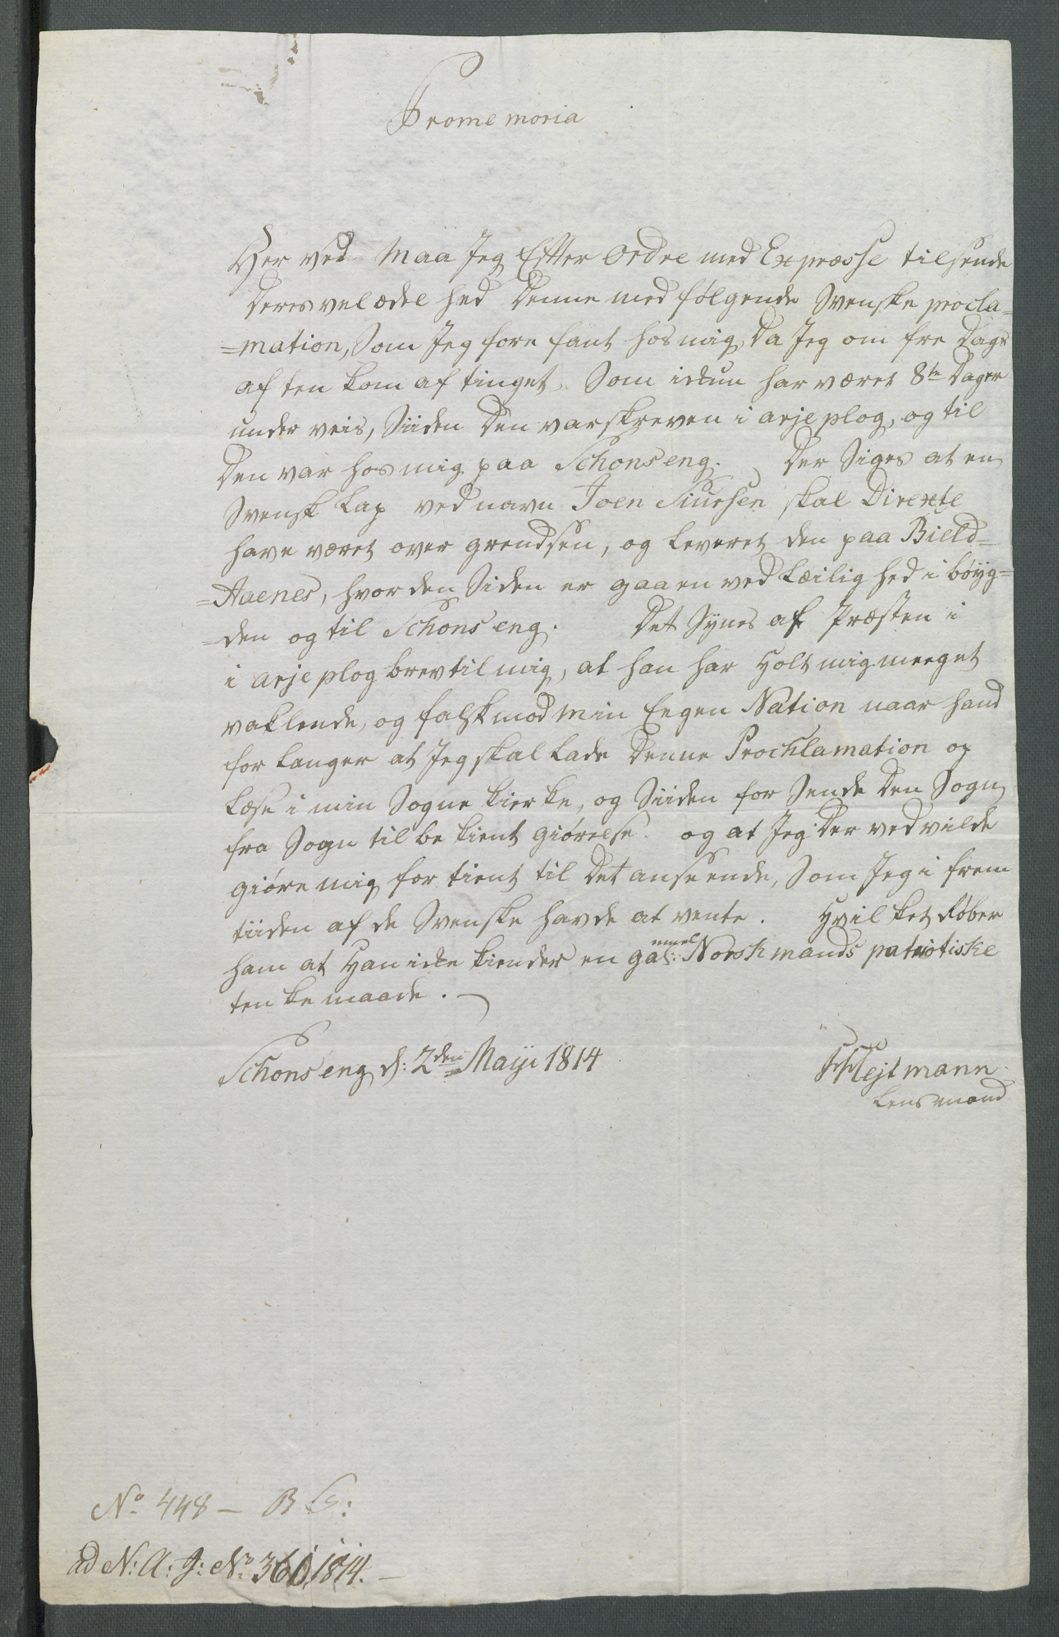 Promemoria
Her ved maa Jeg Efter Ordre med Expresse tilsende
Deres velædel hed Denne med følgende Svenske procla=
=mation, Som Jeg fore fant hos mig, Da Jeg om fre Dags
af ten kom af tinget. Som ickun har været 8te Dager
under veis, Siiden Den var skreven i arjeplog, og til
Den var hos mig paa Schonseng. Der Siges at en
Svensk Lap ved navn Joen Siursen skal Direxte
have været over grendsen, og Leveret den paa Bield=
=Aaenes, hvor den Siden er gaaen ved Læilig hed i böyg=
=den og til Schonseng. Det Synes af Præsten i
i arjeplog brev til mig, at han har Holt mig meeget
vaklende, og falsk mod min Eegen Nation naar hand
for langer at Jeg skal Lade Denne Prochlamation op
Læse i min Sogne kierke, og Siiden for Sende Den Sogn
fra Sogn til be kient giörelse. og at Jeg Der ved vilde
giöre mig for tient til Det anseende, Som Jeg i frem
tiiden af de Svenske havde at vente. Hvilket Røber
ham at Han icke kiender en gammel Norsk mands patriotiske
tenke maade.
Schonseng d: 2den Maji 1814
Hejtmann
Lensmand
No 448 — B
ad N: A: J: No 360, 1814. —